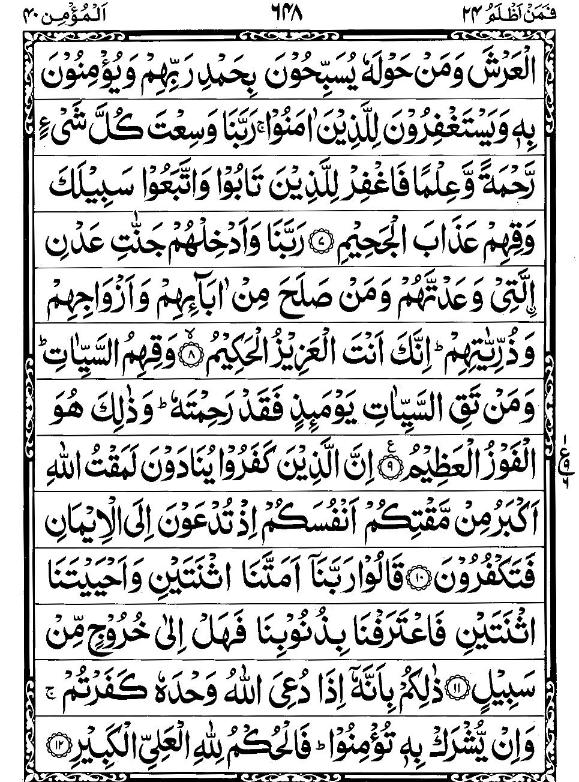 فَمَنْ اَظْلَمُ ٢٤ ٦٤٨ اَلْمُؤْمِن ٤٠
الْعَرْشَ وَمَنْ حَوْلَهٗ يُسَبِّحُوْنَ بِحَمْدِ رَبِّهِمْ وَيُؤْمِنُوْنَ
بِهٖ وَيَسْتَغْفِرُوْنَ لِلَّذِيْنَ اٰمَنُوْا ۚ رَبَّنَا وَسِعْتَ كُلَّ شَيْءٍ
رَّحْمَةً وَّعِلْمًا فَاغْفِرْ لِلَّذِيْنَ تَابُوْا وَاتَّبَعُوْا سَبِيْلَكَ
وَقِهِمْ عَذَابَ الْجَحِيْمِ ﴿٧﴾ رَبَّنَا وَاَدْخِلْهُمْ جَنّٰتِ عَدْنِ
ۨالَّتِيْ وَعَدْتَّهُمْ وَمَنْ صَلَحَ مِنْ اٰبَآئِهِمْ وَاَزْوَاجِهِمْ
وَذُرِّيّٰتِهِمْ ؕ اِنَّكَ اَنْتَ الْعَزِيْزُ الْحَكِيْمُ ﴿٨﴾ ۙ وَقِهِمُ السَّيِّاٰتِ ؕ
وَمَنْ تَقِ السَّيِّاٰتِ يَوْمَئِذٍ فَقَدْ رَحِمْتَهٗ ؕ وَذٰلِكَ هُوَ
الْفَوْزُ الْعَظِيْمُ ﴿٩﴾ اِنَّ الَّذِيْنَ كَفَرُوْا يُنَادَوْنَ لَمَقْتُ اللّٰهِ
اَكْبَرُ مِنْ مَّقْتِكُمْ اَنْفُسَكُمْ اِذْ تُدْعَوْنَ اِلَى الْاِيْمَانِ
فَتَكْفُرُوْنَ ﴿١٠﴾ قَالُوْا رَبَّنَآ اَمَتَّنَا اثْنَتَيْنِ وَاَحْيَيْتَنَا
اثْنَتَيْنِ فَاعْتَرَفْنَا بِذُنُوْبِنَا فَهَلْ اِلٰى خُرُوْجٍ مِّنْ
سَبِيْلٍ ﴿١١﴾ ذٰلِكُمْ بِاَنَّهٗٓ اِذَا دُعِيَ اللّٰهُ وَحْدَهٗ كَفَرْتُمْ ۚ
وَاِنْ يُّشْرَكْ بِهٖ تُؤْمِنُوْا ؕ فَالْحُكْمُ لِلّٰهِ الْعَلِيِّ الْكَبِيْرِ ﴿١٢﴾